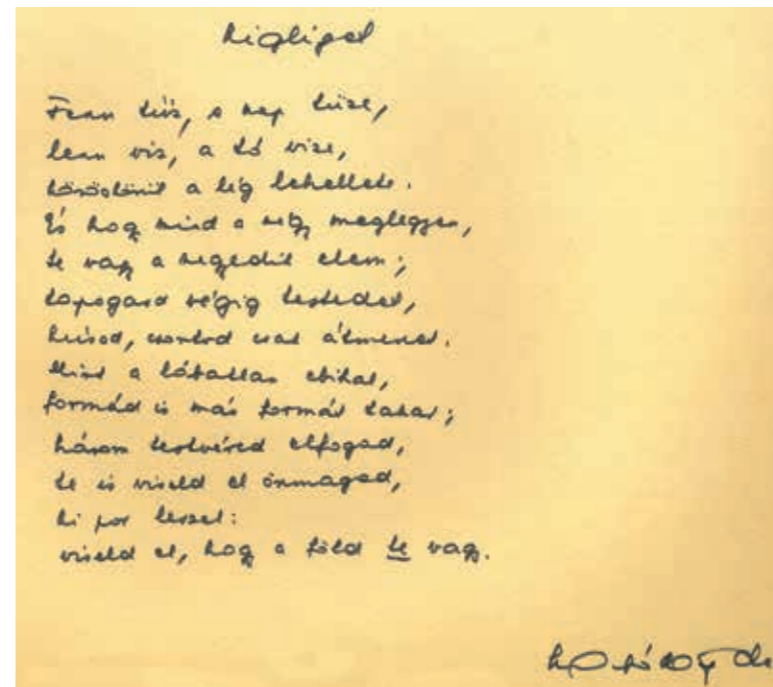 Fenn tűz, a nap tüze,
lenn víz, a tó vize,
köröskörül a lég lehellete.
És hogy mind a négy meglegyen,
te vagy a negyedik elem;
tapogasd végig testedet,
húsod, csontod csak átmenet.
Mint a lábatlan ebihal,
formád is más formát takar;
három testvéred elfogad,
te is viseld el önmagad,
ki por leszel:
viseld el, hogy a föld te vagy.